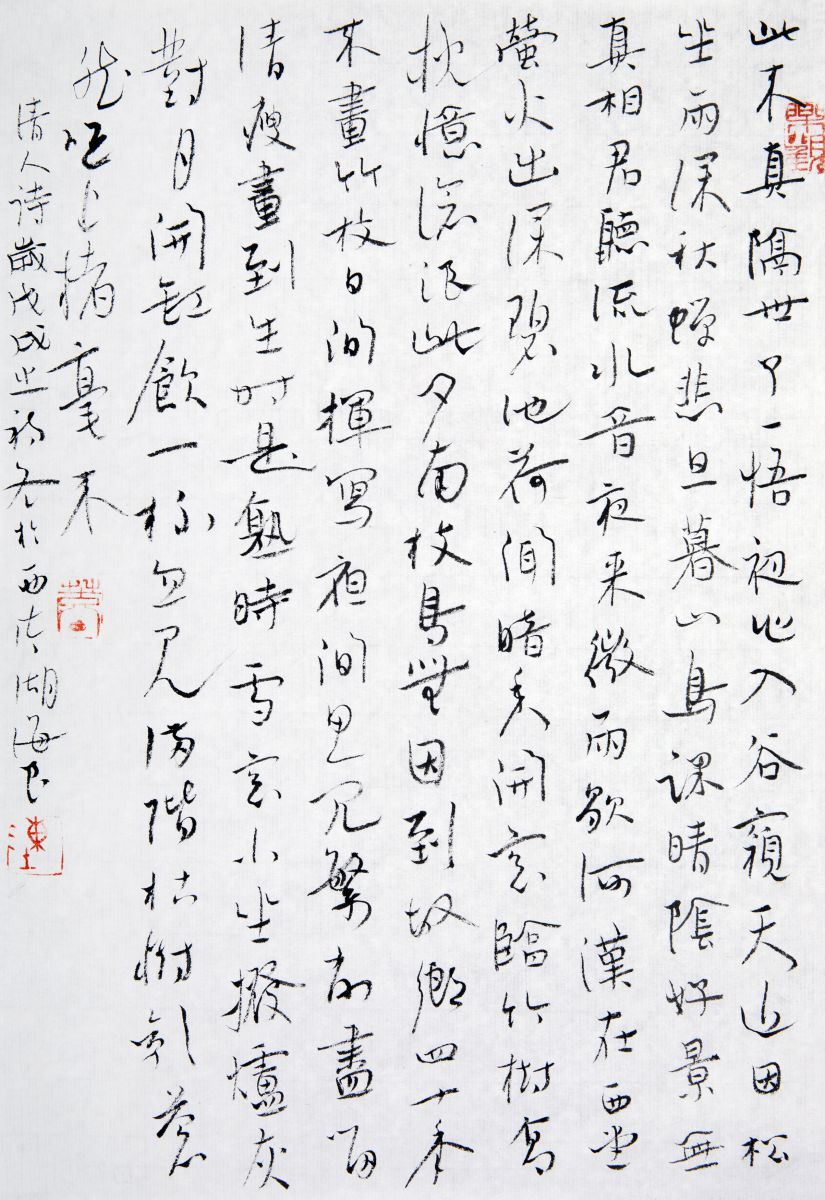 此木真隔世了悟初心入谷窺天近因松
坐雨深秋蟬悲旦暮山鳥課晴陰好景無
真相君聽流水音夜来微雨歇河漢在西堂
螢火出深碧池荷聞暗香開窓臨竹樹高
枕憶滄浪此夕南枝鳥無因到故鄉四十年
来畫竹枝日間揮寫夜間思冗繁削盡留
清瘦畫到生時是熟時雪窓小坐撥爐灰
對月開缸飲一杯忽見滿階枯樹乱蒼
然上楮毫来
清人诗歲戊戌之初冬於西湖海